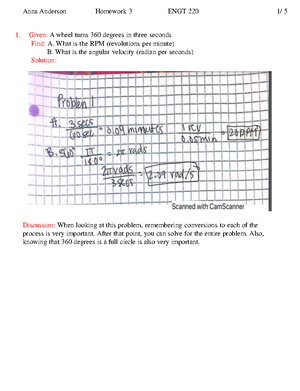 Anna Anderson Homework 3 ENGT 220 1/ 5
1. Given: A wheel turns 360 degrees in three seconds
Find: A. What is the RPM (revolutions per minute)
B. What is the angular velocity (radian per seconds)
Solution:
Problem 1
A. 3 secs / 60 sec = 0.04 minutes 1 rev / 0.05 min = 20 RPM
B. 360° π / 180° = 2π rads
2π rads / 3 secs = 2.09 rad/s
Scanned with CamScanner
Discussion: When looking at this problem, remembering conversions to each of the
process is very important. After that point, you can solve for the entire problem. Also,
knowing that 360 degrees is a full circle is also very important.